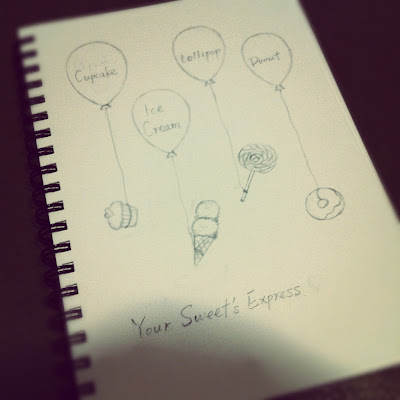 Cupcake
Lollipop
Donut
Ice
Cream
Your Sweet's Express